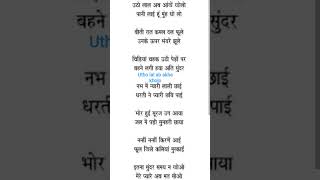 उठो लाल अब आंखें खोलो
पानी लाई हूं मुंह धो लो
बीती रात कमल दल फूले
उनके ऊपर भंवरे झूले
चिड़ियां चहक उठी पेड़ों पर
बहने लगी हवा अति सुंदर
Utho lal ab akhe kholo
नभ में प्यारी लाली छाई
धरती ने प्यारी छवि पाई
भोर हुई सूरज उग आया
जल में पड़ी सुनहरी छाया
नन्हीं नन्हीं किरणें आईं
फूल खिले कलियां मुस्काईं
इतना सुंदर समय न खोओ
मेरे प्यारे अब मत सोओ